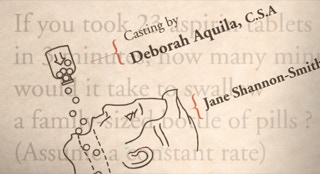 If you took 23 aspirin tablets
Casting by
Deborah Aquila, C.S.A
in 5 minutes, how many minutes
would it take to swallow
Jane Shannon-Smith
a family-sized bottle of pills ?
(Assume a constant rate)